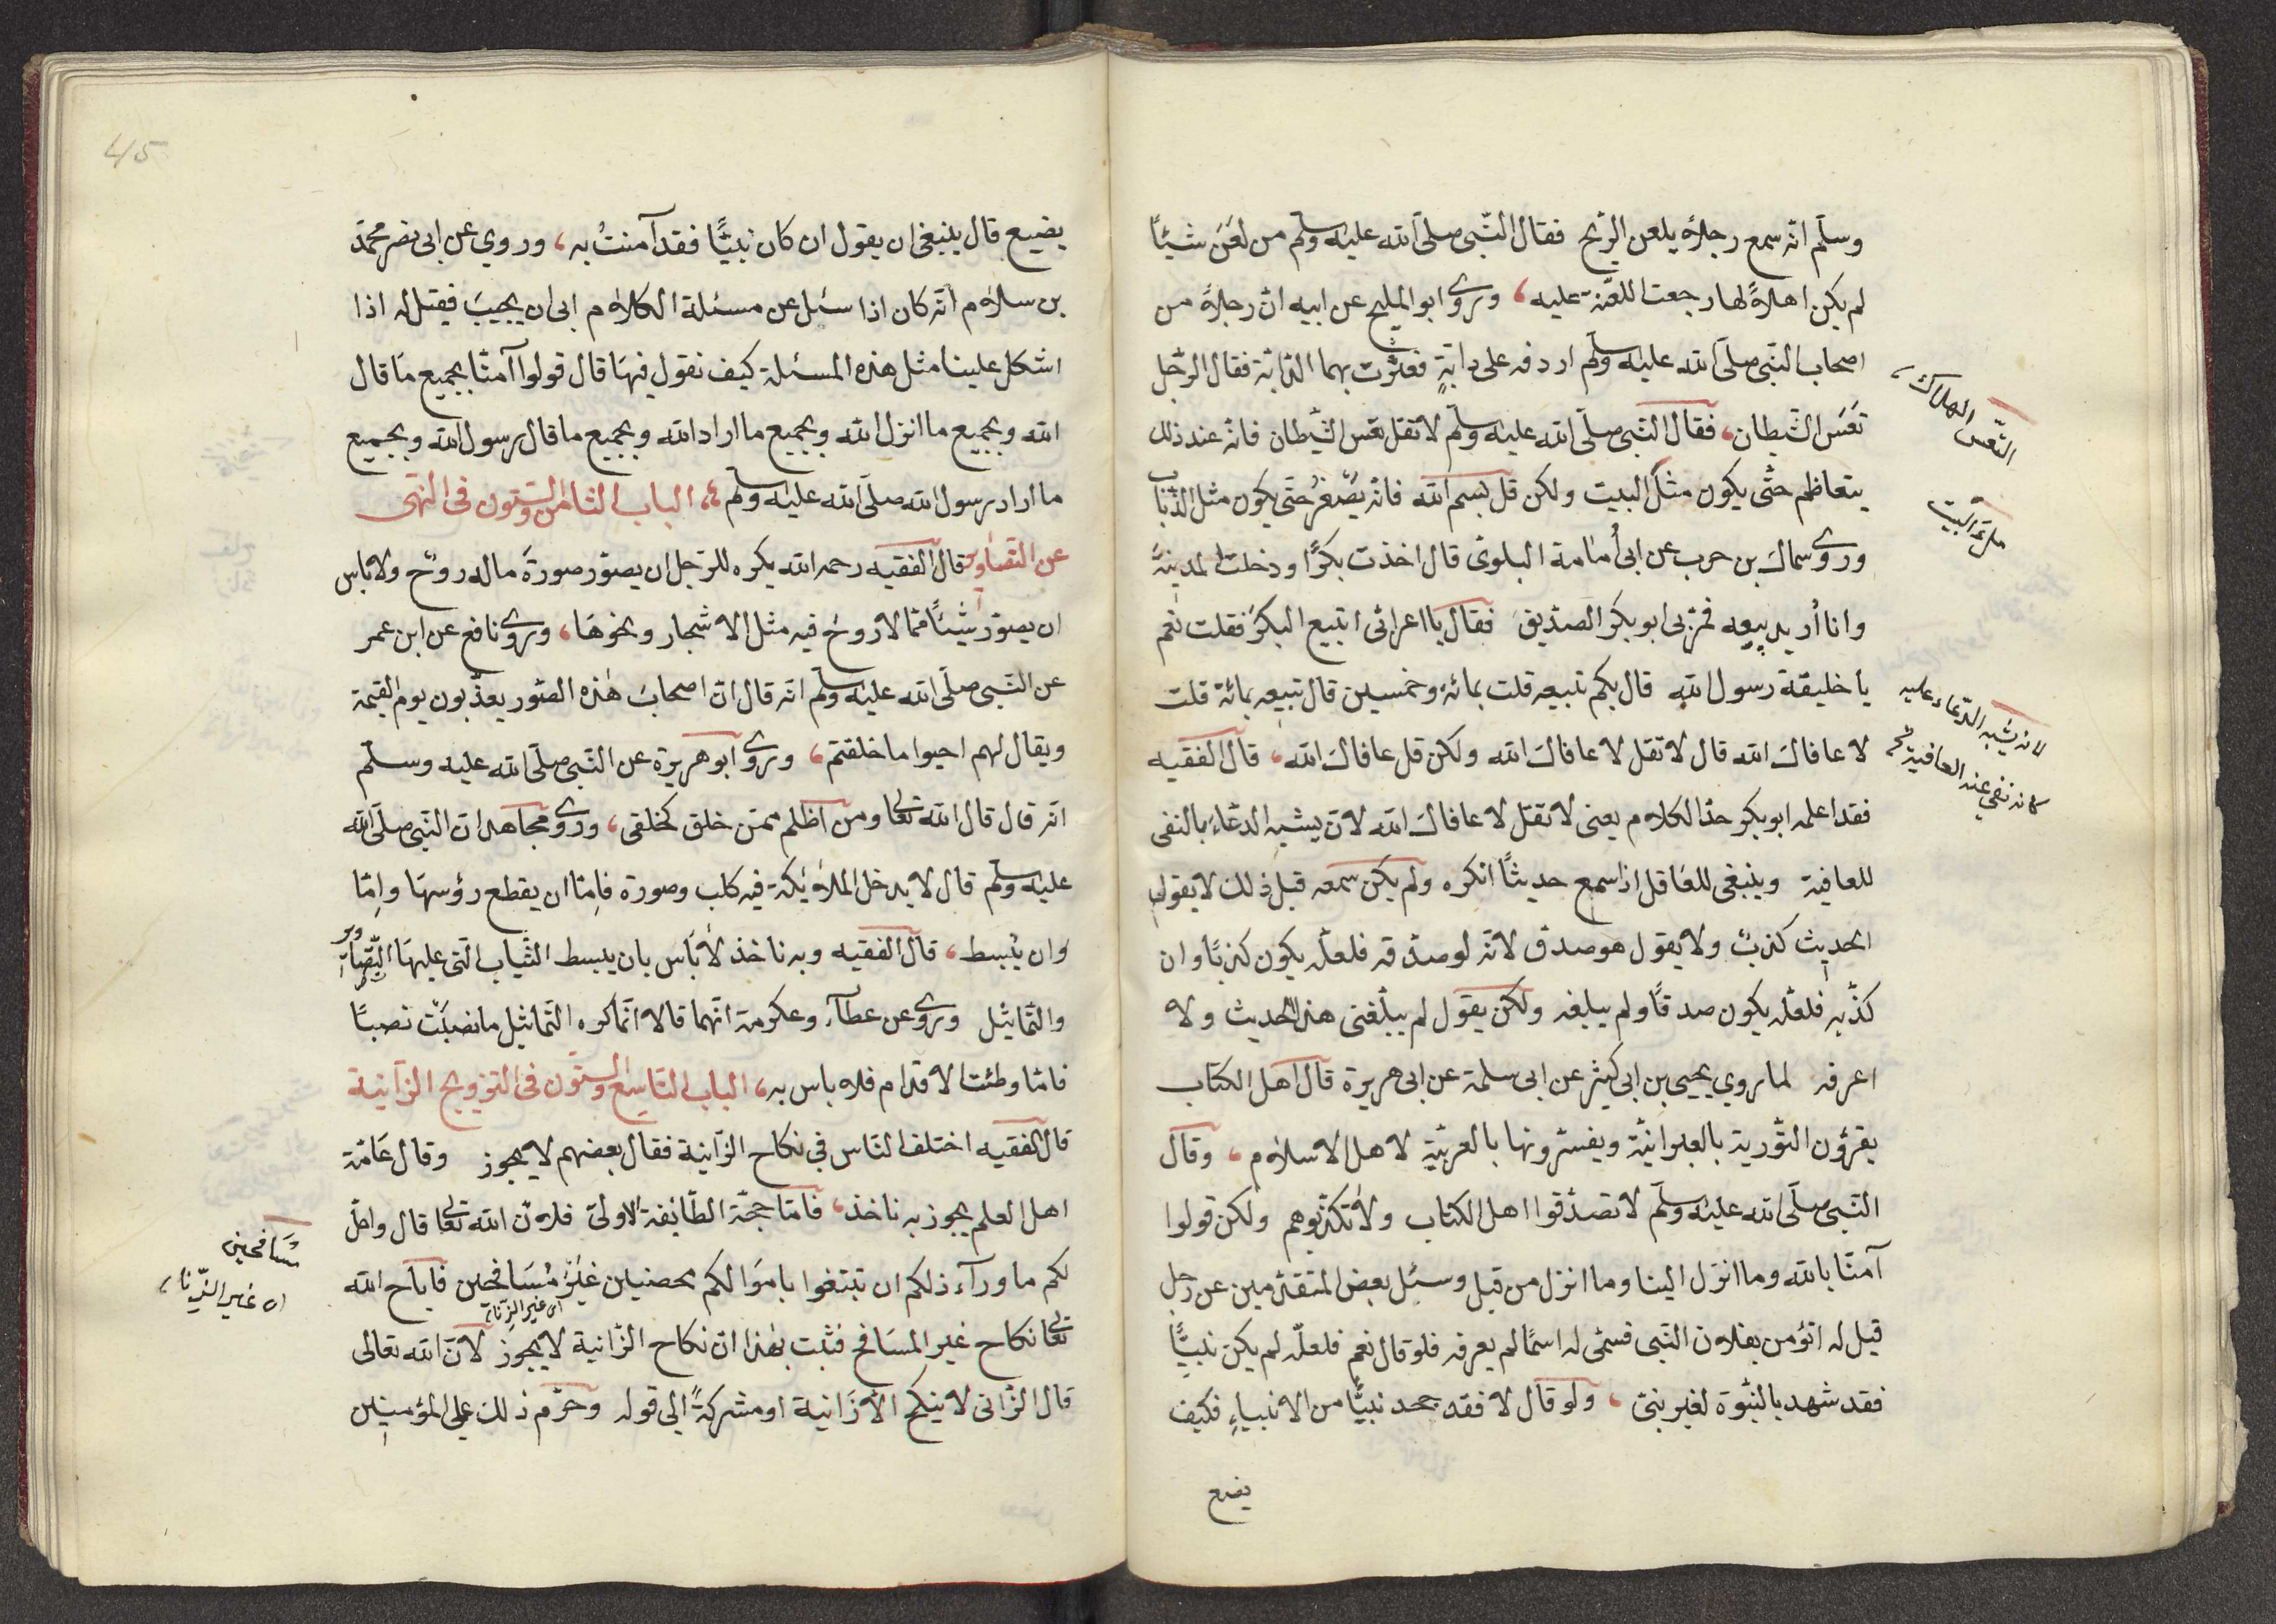 وسلّم انّه سمع رجلاً يلعن الرّيح فقال النّبى صلّى الله عليه وسلّم من لعَنَ شيئاً
لم يكن اهلاً لها رجعت اللعنة عليه، وروى ابو المليح عن ابيه انّ رجلاً من
اصحاب النّبى صلّى الله عليه وسلّم اردفه على دابّةٍ فعثرت بهما الدّابّة فقال الرّجل
تعَسَ الشّيطان، فقال النّبى صلّى الله عليه وسلّم لا تقل تعس الشّيطان فانّه عند ذلك
يتعاظم حتّى يكون مثل البيت ولكن قل بسم الله فانّه يصغر حتّى يكون مثل الذّباب
وروى سماك بن حرب عن ابى أمامة البلوى قال اخذت بكرًا ودخلت المدينة
وانا أريد بيعه فمرّ بى ابو بكر الصّديق فقال يا اعرابى اتبيع البكر فقلت نعم
يا خليفة رسول الله قال بكم تبيعه قلت بمائة وخمسين قال تبيعه بمائة قلت
لا عافاك الله قال لا تقل لا عافاك الله ولكن قل عافاك الله، قال الفقيه
فقد اعلمه ابو بكر حدّ الكلام يعنى لا تقل لا عافاك الله لانّ يشبه الدّعاء بالنفى
للعافية وينبغى للعاقل اذا سمع حديثًا انكره ولم يكن سمعه قبل ذلك لا يقول
الحديث كذبٌ ولا يقول هو صدق لانّه لو صدّقه فلعلّه يكون كذبًا وان
كذّبه فلعلّه يكون صدقًا ولم يبلغه ولكن يقول لم يبلّغنى هذا الحديث ولا
اعرفه لما روي يحيى بن ابى كثير عن ابى سلمة عن ابى هريرة قال اهل الكتاب
يقرؤن التّورية بالعبرانيّة ويفسّرونها بالعربيّة لاهل الاسلام، وقال
النّبى صلّى الله عليه وسلّم لا تصدّقوا اهل الكتاب ولا تكذّبوهم ولكن قولوا
آمنّا بالله وما انزل الينا وما انزل من قبل وسئل بعض المتقدّمين عن رجل
قيل له اتؤمن بفلان النّبى فسمّى له اسمًا لم يعرفه فلو قال نعم فلعلّه لم يكن نبيًّا
فقد شهد بالنبوّة لغير نبىّ، ولو قال لا فقد جحد نبيًّا من الانبياء فكيف
يضع
التّعس الهلاك
ملء البيت
لانه يشبه الدّعاء عليه
كانه نفى عنه العافية
45
يضيع قال ينبغى ان يقول ان كان نبيًّا فقد آمنتُ به، وروي عن ابى نصر محمّد
بن سلام انّه كان اذا سئل عن مسئلة الكلام ابى ان يجيبَ فيقتل له اذا
اشكل علينا مثل هذه المسئلة كيف نقول فيها قال قولوا آمنّا بجميع ما قال
الله وبجميع ما انزل الله وبجميع ما اراد الله وبجميع ما قال رسول الله وبجميع
ما اراد رسول الله صلّى الله عليه وسلّم، الباب الثامن والستّون فى النّهى
عن التّصاوير قال الفقيه رحمه الله يكره للرّجل ان يصوّر صورة ماله روح ولا باس
ان يصوّر شيئاً ممّا لا روح فيه مثل الاشجار ونحوها، وروى نافع عن ابن عمر
عن النّبى صلّى الله عليه وسلّم انّه قال انّ اصحاب هذه الصّور يعذّبون يوم القيمة
ويقال لهم احيوا ما خلقتم، وروى ابو هريرة عن النّبى صلّى الله عليه وسلّم
انّه قال قال الله تعالى ومن اظلم ممّن خلق كخلقى، وروى مجاهد انّ النّبى صلّى الله
عليه وسلّم قال لا يدخل الملائكة فيه كلب وصورة فامّا ان يقطع رؤسها وامّا
وان يُبسط، قال الفقيه وبه ناخذ لا بأس بان يبسط الثّياب الّتى عليها التّصاوير
والتّماثيل وروى عن عطآء وعكرمة انّهما قالا انّما كره التّماثيل ما نصبت نصبًا
فامّا وطئت الاقدام فلا باس به، الباب التاسع والستّون فى التزويج الزّانية
قال الفقيه اختلف النّاس في نكاح الزّانية فقال بعضهم لا يجوز وقال عامّة
اهل العلم يجوز به ناخذ، فامّا حجّة الطّائفة الاولى فلانّ الله تعالى قال واحلّ
لكم ما ورآء ذلكم ان تبتغوا باموالكم محصنين غيرَ مُسَافحين فاباح الله
اى غير الزّناة
تعالى نكاح غير المسَافح فثبت بهذا انّ نكاح الزّانية لا يجوز لانّ الله تعالى
قال الزّانى لا ينكح الاّ زانية او مشركةً الى قوله وحرّم ذلك على المؤمنين
مسَافحين
اى غير الزّناة